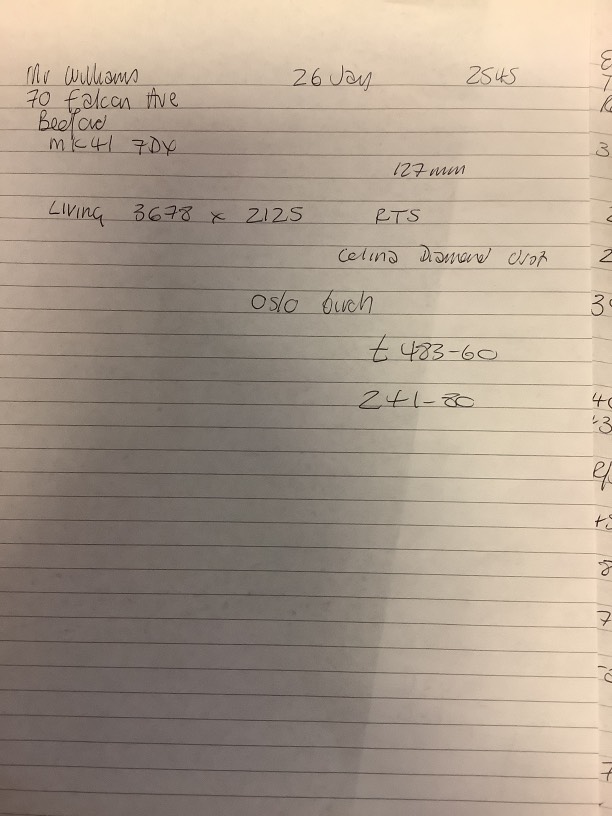 Mr Williams 26 Jan 2545
70 Falcon Ave
Beeford
MK41 7DX
127mm
Living 3678 x 2125 RTS
Celina Diamond
Oslo
£ 483-60
241-80